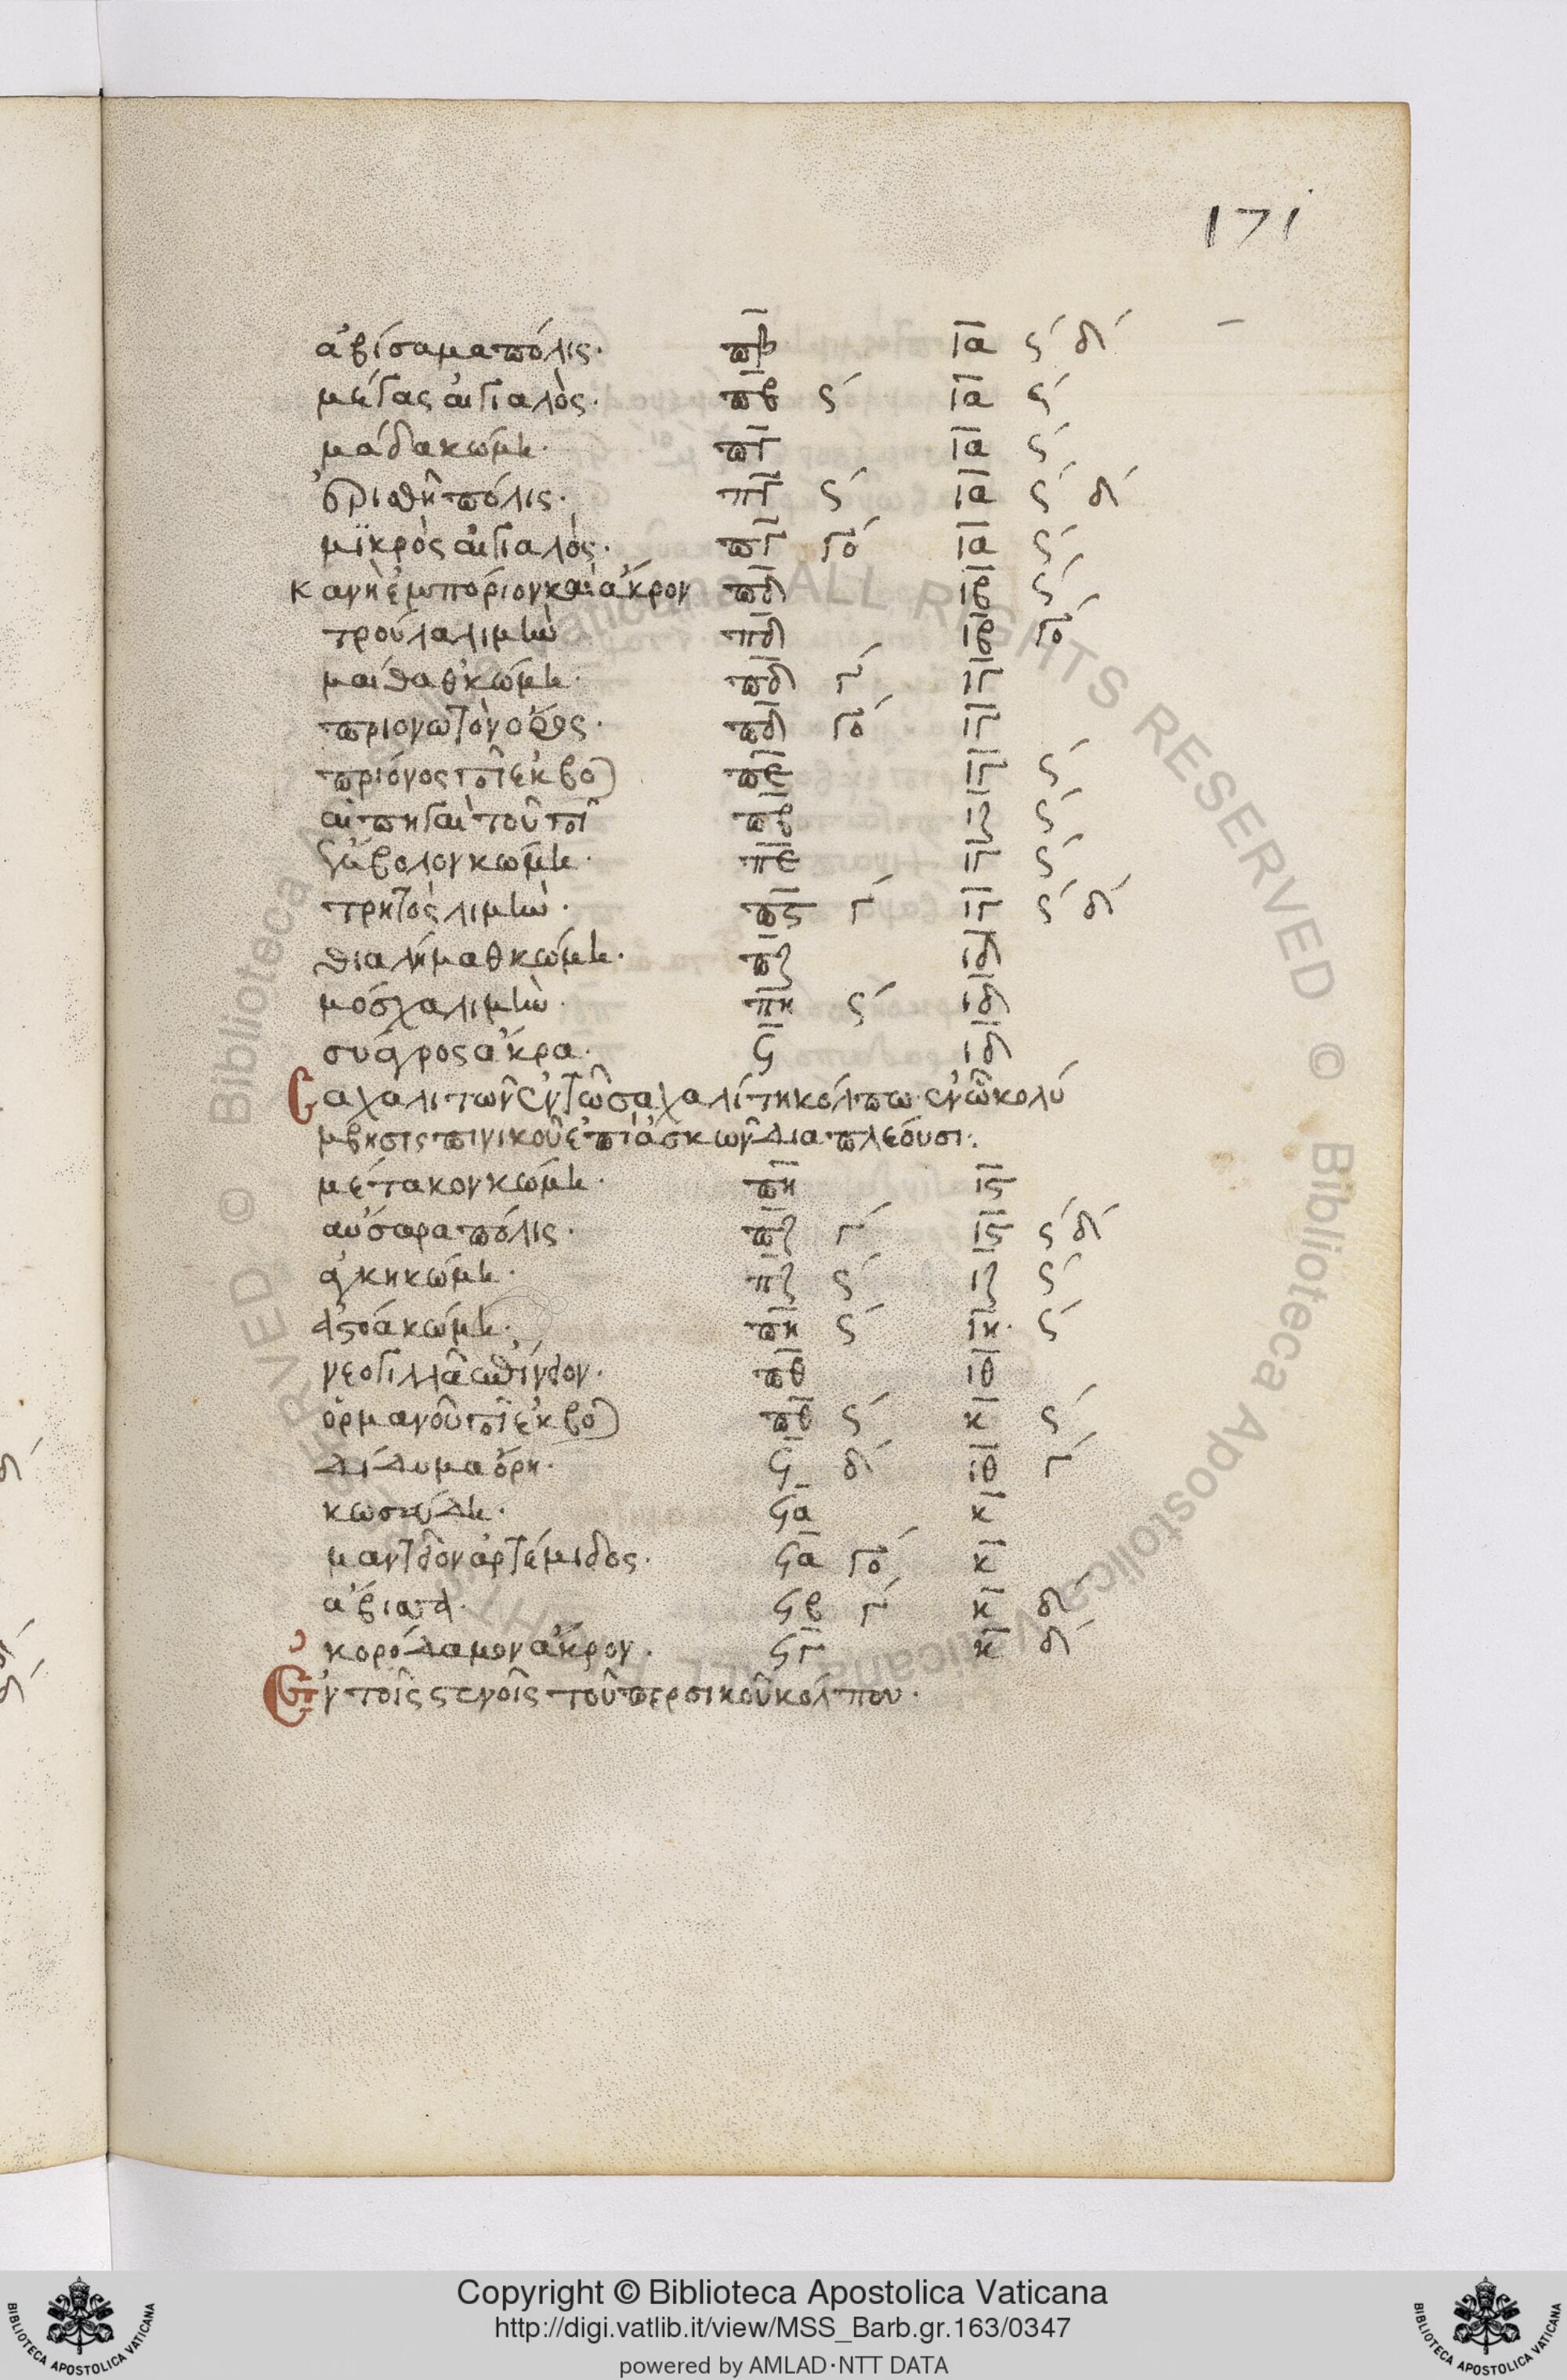 171
ἀβίσαμα πόλις· πβ ια ϛ´ δ´
μέγας αἰγιαλὸς· πβ ϛ´ ια ϛ´
μάδα κώμη· πγ ια ϛ´
ἐριθῆ πόλις· πγ ϛ´ ια ϛ´ δ´
μϊκρὸς αἰγιαλὸς· πγ γο´ ια ϛ´
κανὴ ἐμπόριον καὶ ἄκρον πδ ιβ ϛ´
τρούλα λιμὴν πδ ιβ γο´
μαίθαθ κώμη· πδ γ´ ιγ
πριονωτὸν ὄρος· πδ γο´ ιγ
πριόνος πο ἐκβο πε ιγ ϛ´
αἱ πηγαὶ τοῦ πο πβ ιζ ϛ´
ἔμβολον κώμη· πε ιγ ϛ´
τρητὸς λιμὴν· πϛ γ´ ιγ ϛ´ δ´
θιαλήμαθ κώμη· πζ ιδ
μόσχα λιμὴν· πη ϛ´ ιδ
σύαγρος ἄκρα· ϟ ιδ
Σαχαλιτῶν ἐν τῶ σαχαλίτη κόλπω· ἐν ὧ κολύ
μβησις πινικοῦ ἐπὶ ἀσκῶν διαπλεόυσι·
μέτακον κώμη· πη ιϛ
αὔσαρα πόλις· πζ γ´ ιϛ ϛ´ δ´
ἄγκη κώμη· πζ ϛ´ ιζ ϛ´
ἀστόα κώμη· πη ϛ´ ιη· ϛ´
νεογιλλᾶ ἐπίνειον· πθ ιθ
ὁρμανοῦ πο ἐκβο πθ ϛ´ κ ϛ´
δίδυμα ὄρη· ϟ δ´ ιθ γ´
κωσεύδη· ϟα κ
μαντεῖον ἀρτέμιδος· ϟα γο´ κ
ἄβισσα· ϟβ γ´ κ δ´
κορόδαμον ἄκρον· ϟγ κ δ´
Ἐν τοῖς στενοῖς τοῦ περσικοῦ κόλπου·
Copyright © Biblioteca Apostolica Vaticana
http://digi.vatlib.it/view/MSS_Barb.gr.163/0347
powered by AMLAD·NTT DATA